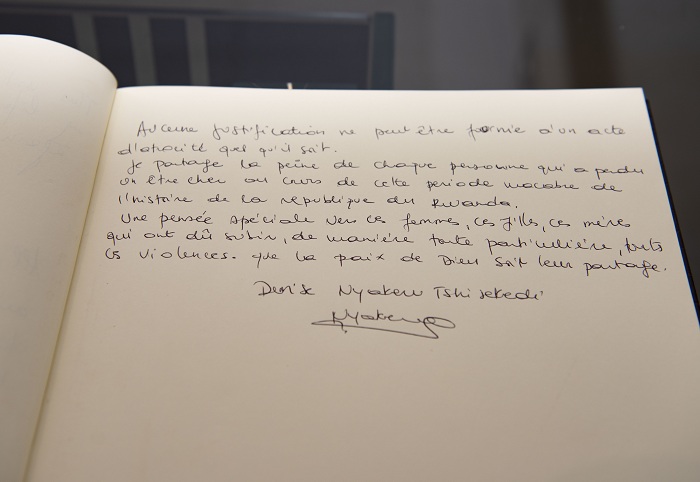 Aucune justification ne peut être fournie à un acte
d'atrocité quel qu'il soit.
Je partage la peine de chaque personne qui a perdu
un être cher au cours de cette periode macabre de
l'histoire de la république du Rwanda.
Une pensée spéciale vers ces femmes, ces filles, ces mères
qui ont dû subir, de manière toute particulière, toutes
ces violences. que la paix de Dieu soit leur partage.
Denise Nyakeru Tshisekedi
Nyakeru